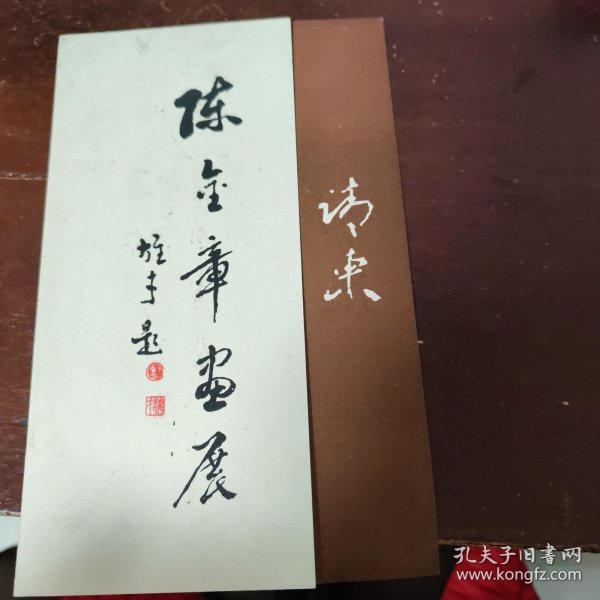 陈金章画展
雄才题
请柬
孔夫子旧书网
www.kongfz.com